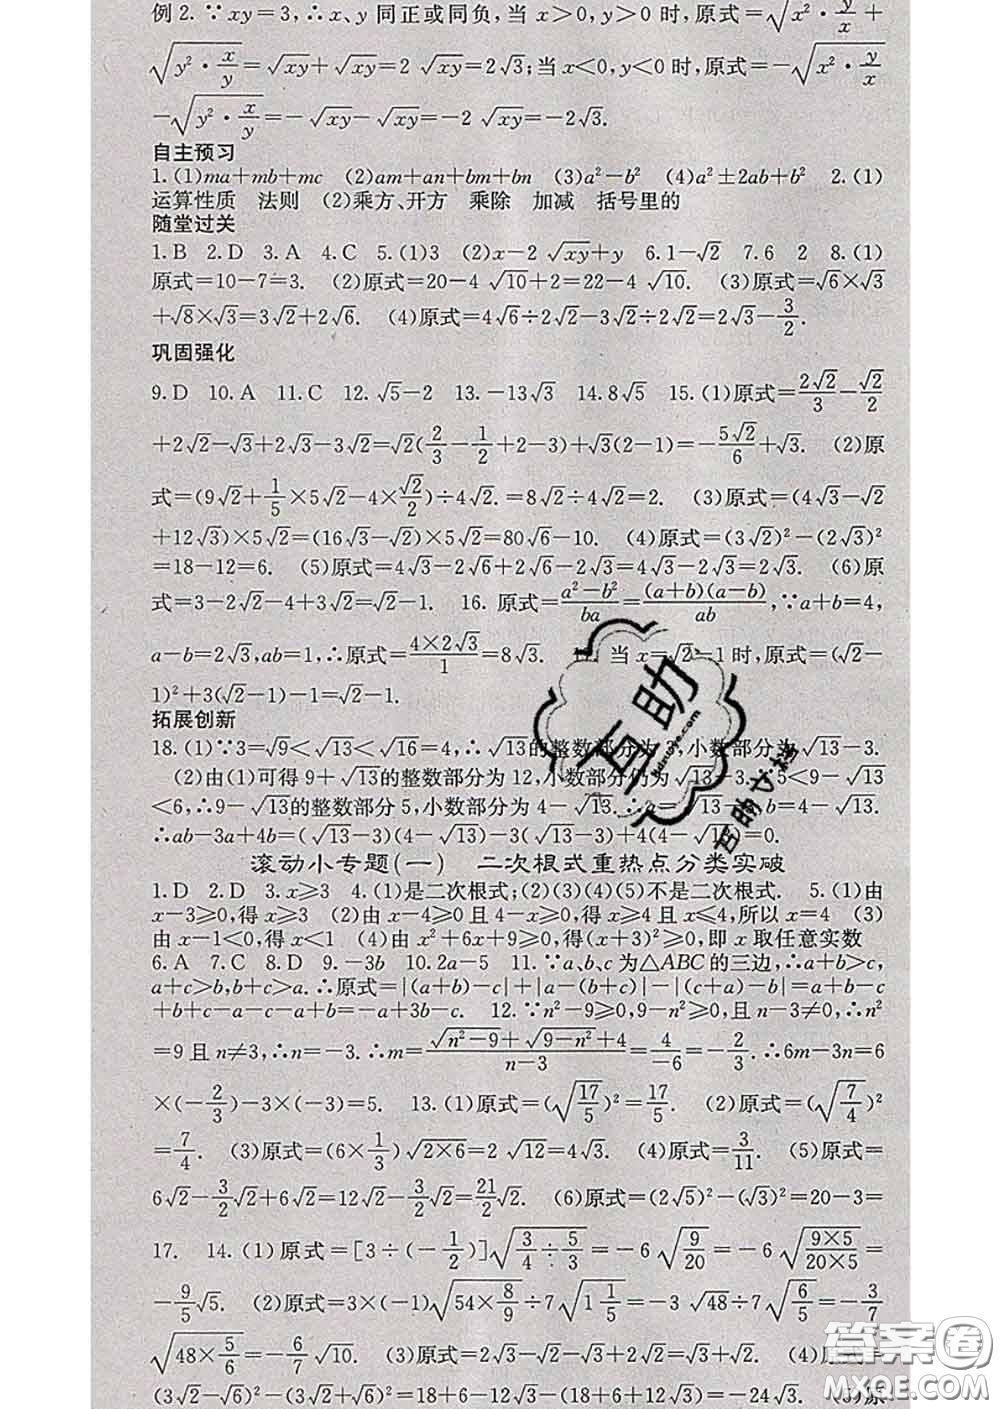 例2. ∵xy=3,∴x、y 同正或同负,当 x>0,y>0 时,原式=√(x²·y/x)+
√(y²·x/y)=√xy+√xy=2 √xy=2√3;当 x<0,y<0 时,原式=-√(x²·y/x)
-√(y²·x/y)=-√xy-√xy=-2 √xy=-2√3.
自主预习
1.(1)ma+mb+mc (2)am+an+bm+bn (3)a²-b² (4)a²±2ab+b² 2.(1)
运算性质 法则 (2)乘方、开方 乘除 加减 括号里的
随堂过关
1.B 2.D 3.A 4.C 5.(1)3 (2)x-2 √xy+y 6.1-√2 7.6 2 8.(1)
原式=10-7=3. (2)原式=20-4 √10+2=22-4 √10. (3)原式=√6×√3
+√8×√3=3√2+2√6. (4)原式=4√6÷2√2-3√2÷2√2=2√3-3/2.
巩固强化
9.D 10.A 11.C 12.√5-2 13.-13√3 14.8√5 15.(1)原式=2√2/3-√2/2
+2√2-√3+2√3-3√2=√2(2/3-1/2+2-3)+√3(2-1)=-5√2/6+√3. (2)原
式=(9√2+1/5×5√2-4×√2/2)÷4√2.=8√2÷4√2=2. (3)原式=(4√3-√2
+12√3)×5√2=(16√3-√2)×5√2=80√6-10. (4)原式=(3√2)²-(2√3)²
=18-12=6. (5)原式=4√3-2√6+2√6-2√3=4√3-2√3=2√3. (6)原
式=3-2√2-4+3√2=√2-1. 16. 原式=(a²-b²)/ba=(a+b)(a-b)/ab,∵a+b=4,
a-b=2√3,ab=1,∴原式=4×2√3/1=8√3. 当 x=√2-1时,原式=(√2-
1)²+3(√2-1)-1=√2-1.
拓展创新
18.(1)∵3=√9<√13<√16=4,∴√13的整数部分为 3,小数部分为√13-3.
(2)由(1)可得 9+√13的整数部分为 12,小数部分仍为√13-3. 5<9-√13
<6,∴9-√13的整数部分 5,小数部分为 4-√13.∴a=√13-3,b=4-√13.
∴ab-3a+4b=(√13-3)(4-√13)-3(√13-3)+4(4-√13)=0.
滚动小专题(一) 二次根式重热点分类实破
1.D 2.D 3.x≥3 4.(1)是二次根式;(2)(3)(4)(5)不是二次根式. 5.(1)由
x-3≥0,得 x≥3 (2)由 x-4≥0 且 4-x≥0,得 x≥4 且 x≤4,所以 x=4 (3)
由 x-1<0,得 x<1 (4)由 x²+6x+9≥0,得(x+3)²≥0,即 x 取任意实数
6.A 7.C 8.D 9.-3b 10.2a-5 11.∵a、b、c 为△ABC 的三边,∴a+b>c,
a+c>b,b+c>a.∴原式=|(a+b)-c|+|a-(b+c)|-|(c+a)-b|=a+b-c
+b+c-a-c-a+b=-a+3b-c. 12.∵n²-9≥0,9-n²≥0,且 n-3≠0,∴n²
=9 且 n≠3,∴n=-3.∴m=(√(n²-9)+√(9-n²)+4)/(n-3)=4/-6=-2/3.∴6m-3n=6
×(-2/3)-3×(-3)=5. 13.(1)原式=(√(17/5))²=17/5. (2)原式=(√(7/4))²
=7/4. (3)原式=(6×1/3)√(2×6)=2 √12=4√3. (4)原式=3/11. (5)原式=
6√2-3/2√2+6√2=12√2-3/2√2=21/2√2. (6)原式=(2√5)²-(√3)²=20-3=
17. 14.(1)原式=[3÷(-1/2)]√(3/4÷5/3)=-6 √(9/20)=-6 √(9×5/20×5)=
-9/5√5. (2)原式=3×(-1)√(54×8/9)÷7√(1 1/5)=-3 √48÷7√(6/5)=-3/7
√(48×5/6)=-6/7 √10. (3)原式=2√3-√2-√3+2√2=√3+√2. (4)原式=
(3√2-√6)²-(3√2+√6)²=18+6-12√3-(18+6+12√3)=-24√3. (5)原
互助
互助文档
答案圈